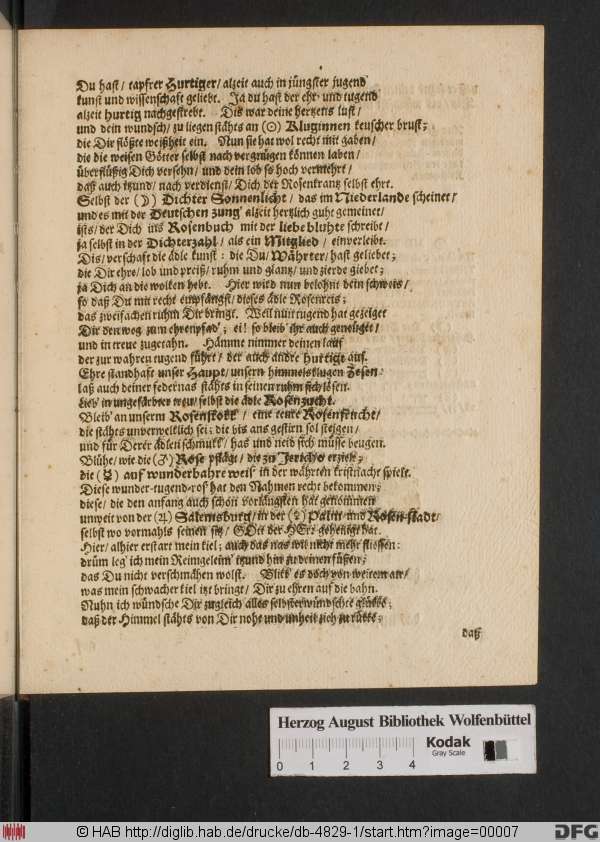 Du hast / tapfrer Hurtiger / alzeit auch in jüngster jugend
kunst und wissenschaft geliebt. Ja du hast der ehr- und tugend
alzeit hurtig nachgestrebt. Dis war deine hertzens lust /
und dein wundsch / zu liegen stähts an (☉) Kluginnen keuscher brust;
die Dir flößte weißheit ein. Nun sie hat wol recht mit gaben /
die die weisen Götter selbst nach vergnügen können laben /
überflüßig Dich versehn / und dein lob so hoch vermehrt /
daß auch itzund / nach verdienst / Dich der Rosenkrantz selbst ehrt.
Selbst der (☽) Dichter Sonnenlicht / das im Niederlande scheinet /
und es mit der Deutschen zung' alzeit hertzlich guht gemeinet /
ists / der Dich ins Rosenbuch mit der liebe bluhte schreibet /
ja selbst in der Dichterzahl / als ein Mitglied / einverleibt.
Dis / verschaft die ädle kunst: die Du / Währter / hast geliebet;
die Dir ehre / lob und preiß / ruhm und glantz / und zierde giebet;
ja Dich an die wolken hebt. Hier wird nun belohnt dein schweis /
so daß Du mit recht empfängst / dieses ädle Rosenreis;
das zweifachen ruhm Dir bringt. Weil nuhn tugend hat gezeiget
Dir den weg zum ehrenpfad'; ei! so bleib' ihr auch geneiget /
und in treue zugetahn. Hämme nimmer deinen lauf
der zur wahren tugend führt / der auch andre hurtigt auf.
Ehre standhaft unser Haupt / unsern himmelsklugen Zesen:
laß auch deiner federnas stähts in seinen ruhm sich lösen.
Lieb' in ungefärbter treu / selbst die ädle Rosenzucht.
Bleib' an unserm Rosenstokk' / eine teure Rosenfrücht /
die stähts unverwelklich sei; die bis ans gestirn sol steigen /
und für Derer ädlen schmukk / has und neid sich müsse beugen.
Blühe / wie die (♂) Rose pflägt / die zu Jericho erzielt;
die (☿) auf wunderbahre weis' in der währten kristnacht spielt.
Diese wunder-tugend-ros' hat den Nahmen recht bekommen;
diese / die den anfang auch schon vorlängsten hat genommen
unweit von der (♃) Salemsburg / in der (♀) Palm- und Rosen-stadt /
selbst wo vormahls seinen sitz / GOtt der HErr geheiligt hat.
Hier / alhier erstart mein kiel; auch das nas wil nicht mehr fliessen:
drüm leg' ich mein Reimgeleim' itzund hin zu deinen füßen;
das Du nicht verschmähen wolst. Blikk' es doch von weitem an /
was mein schwacher kiel itzt bringt / Dir zu ehren auf die bahn.
Nuhn ich wündsche Dir zugleich alles selbsterwündschte glükke;
daß der Himmel stähts von Dir noht und unheil zieh zu rükke;
daß
Herzog August Bibliothek Wolfenbüttel
0 1 2 3 4
Kodak
Gray Scale
© HAB http://diglib.hab.de/drucke/db-4829-1/start.htm?image=00007
DFG